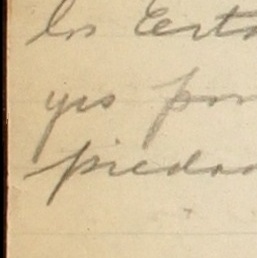 los Esta
yes por
piedad